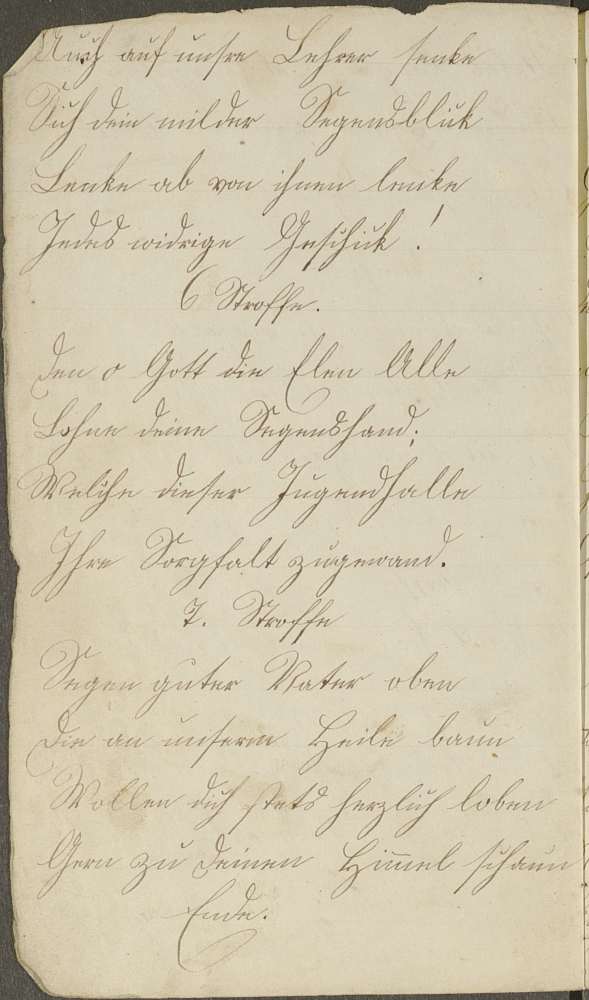 Auch auf unsre Lehrer senke
Sich dein milder Segensblick
Lenke ab von ihnen lenke
Jedes widrige Geschick !
6 Stroffe.
Den o Gott die Elen Alle
Lohne deine Segenshand;
Welche dieser Jugendhalle
Ihre Sorgfalt zugewand.
7. Stroffe
Segen guter Vater oben
Die an unserm Heile baun
Wollen dich stets herzlich loben
Gern zu deinen Himmel schaun
Ende.